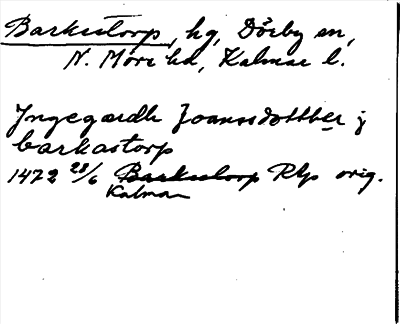 Barkestorp, hg, Dörby sn,
N. Möre hd, Kalmar l.
Yngegærdh Joansdotther j
barkastorp
1472 28/6 Barkestorp Rtp orig.
Kalmar